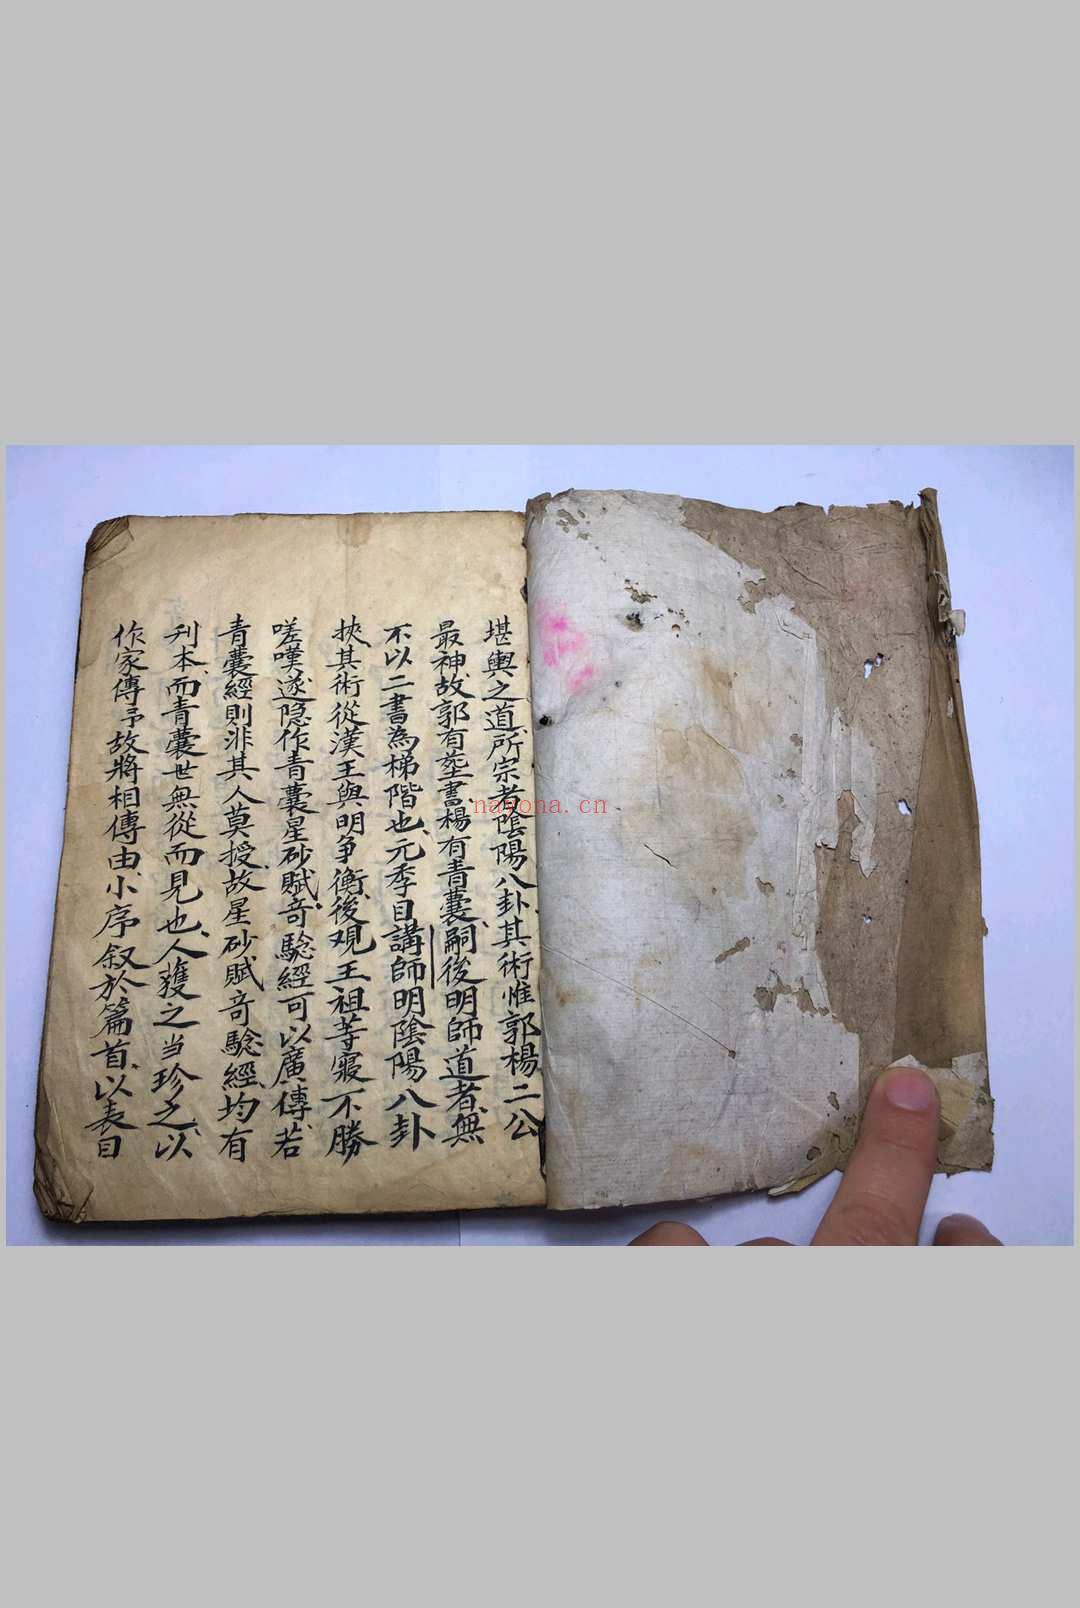 堪輿之道、所宗者陰陽八卦、其術惟郭楊二公
最神、故郭有塟書、楊有青囊、嗣後明師道者、無
不以二書為梯階也、元季目講師明陰陽八卦
挾其術從漢王與明爭衡、後观王祖等寢、不勝
嗟嘆、遂隐作青囊星砂賦、竒騐經可以廣傳、若
青囊經則非其人莫授、故星砂賦竒騐經、均有
刋本、而青囊世無從而見也、人獲之当珍之、以
作家傳、予故將相傳由、小序叙於篇首、以表目
nayona.cn